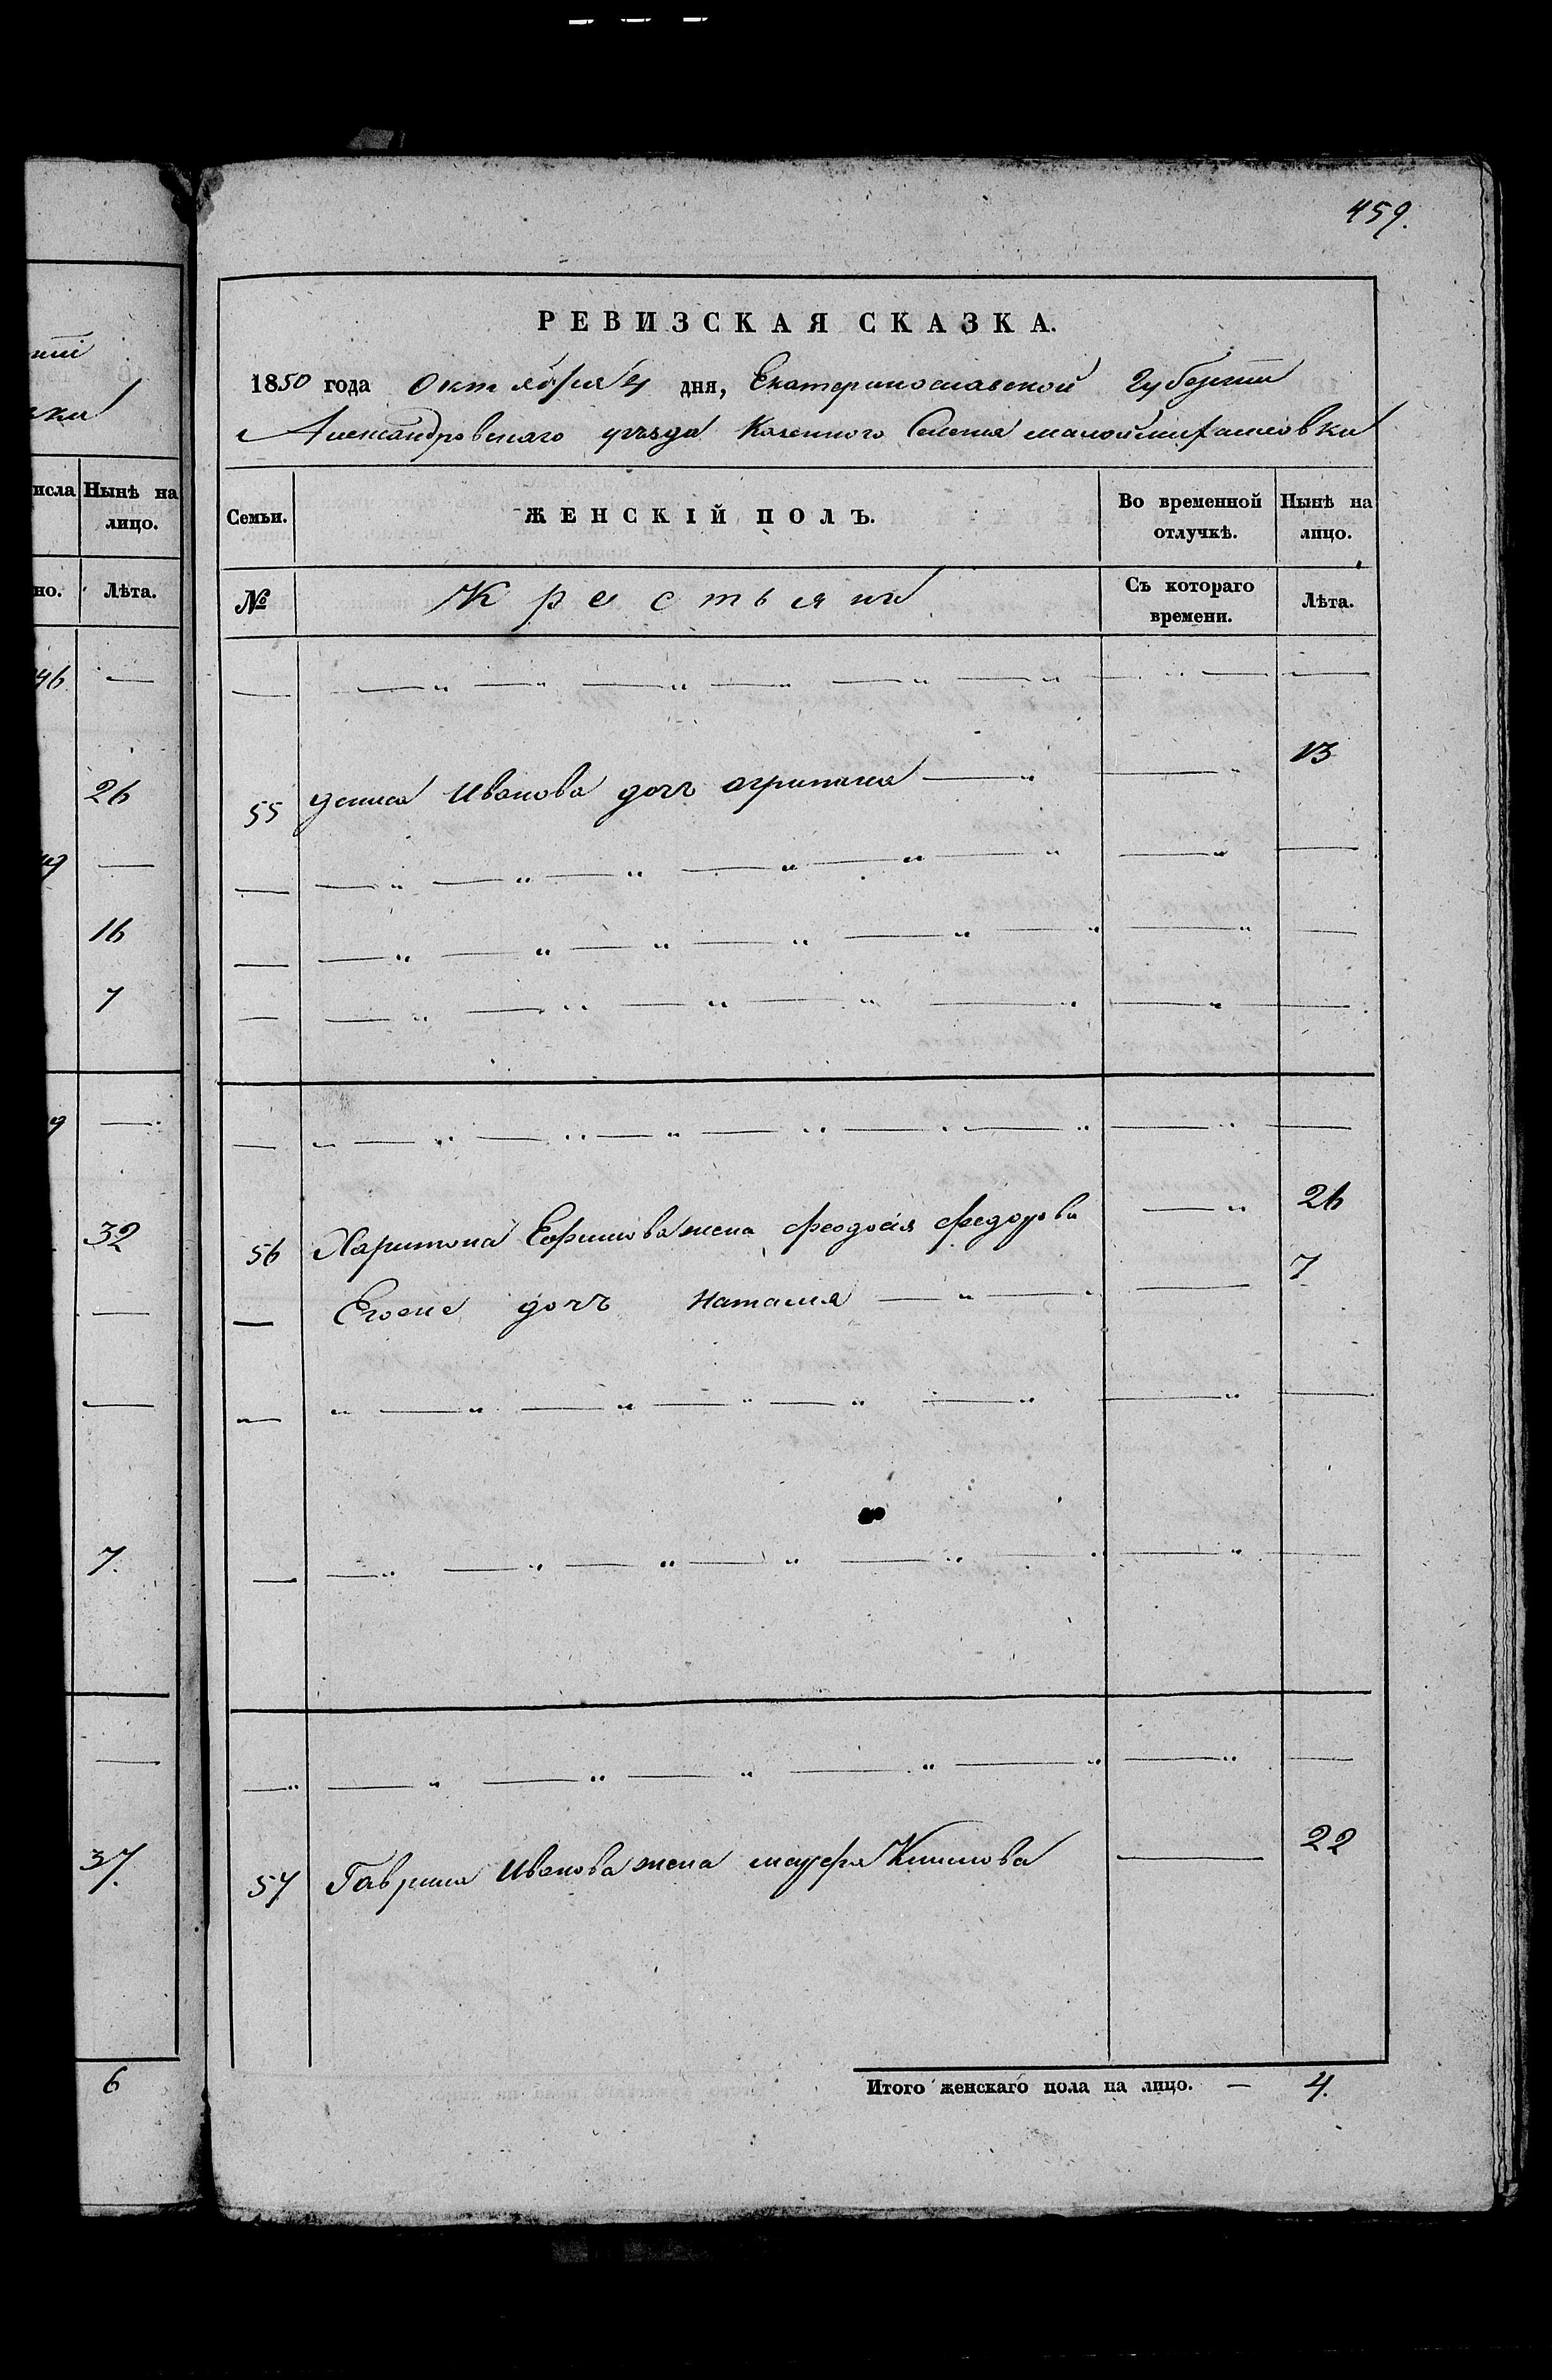 459.
РЕВИЗСКАЯ СКАЗКА.
1850 года Октября 4 дня, Екатеринославской Губернии
Александровскаго уѣзда Казенного Селения малой
Семьи.
ЖЕНСКІЙ ПОЛЪ.
Во временной отлучкѣ.
Нынѣ на лицо.
№
Крестьяне
Съ котораго времени.
Лѣта.
55 Дениса Иванова дочь агрипина — 13
56 Харитона Ефимова жена феодосия федорова — 26
Его дочь Наталия — 7
57 Гаврила Иванова жена — 22
Итого женскаго пола на лицо. — 4.
исла
Нынѣ на лицо.
но.
Лѣта.
46
26
16
7
32
7.
37.
6